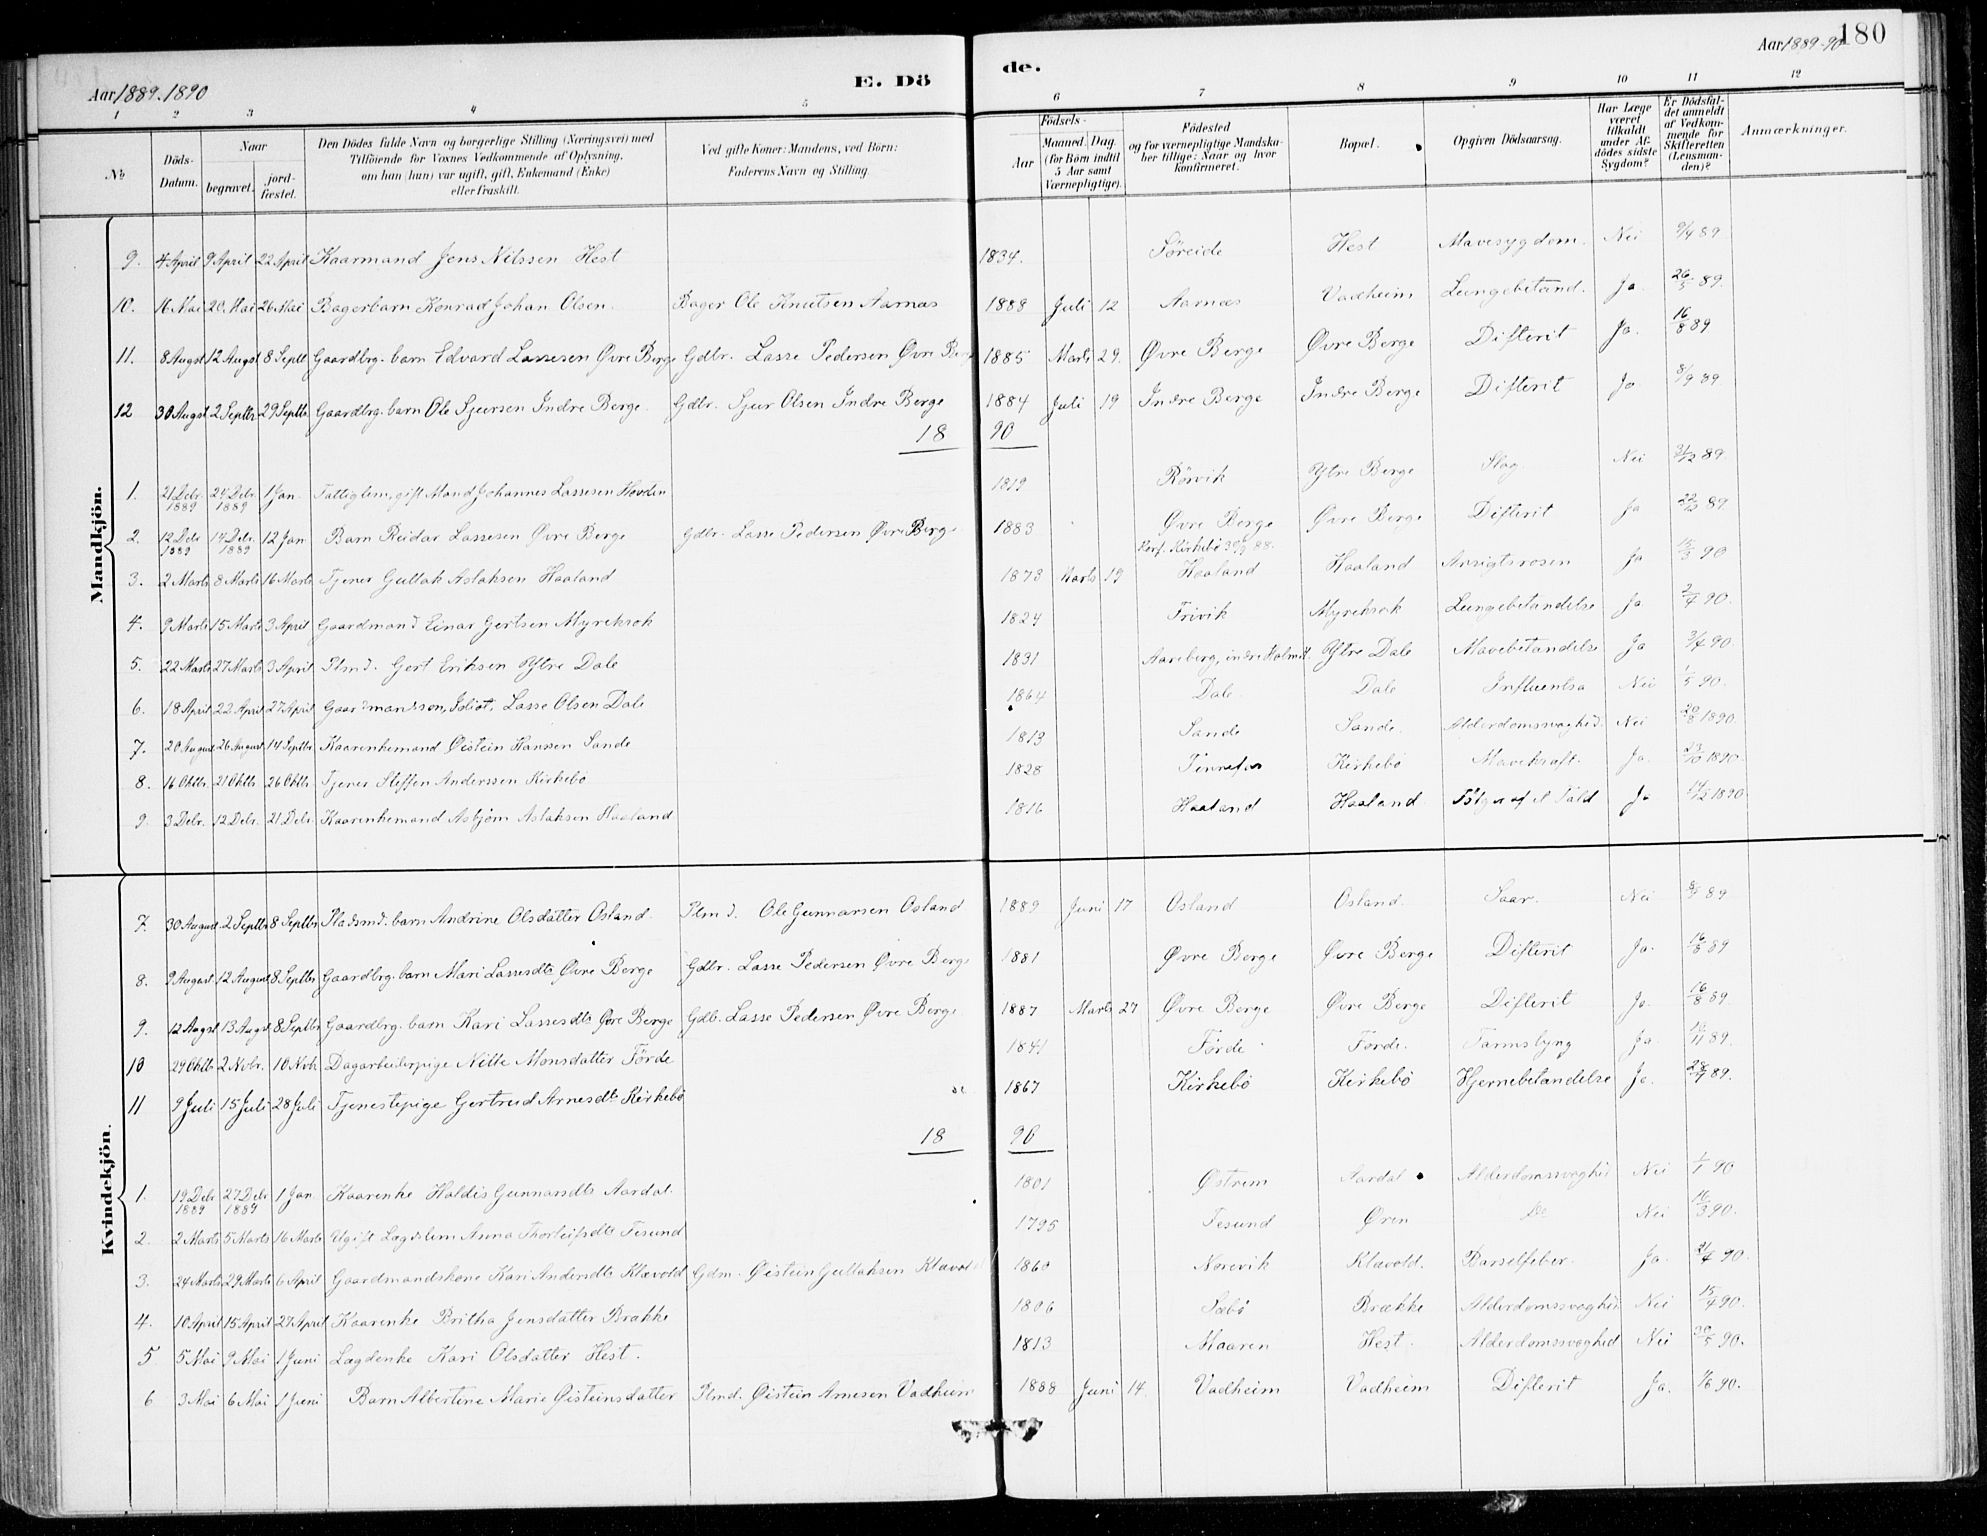 180
Aar 1889-90
Aar 1889. 1890
E. Dö de.
1 2 3 4 5 6 7 8 9 10 11 12
No
Döds-Datum.
Naar
begravet.
jord-fæstet.
Den Dödes fulde Navn og borgerlige Stilling (Næringsvei) med Tilföiende for Voxnes Vedkommende af Oplysning, om han (hun) var ugift, gift, Enkemand (Enke) eller fraskilt.
Ved gifte Koner: Mandens, ved Börn: Faderens Navn og Stilling.
Födsels-
Aar
Maaned. Dag.
(for Börn indtil 5 Aar samt Værnepligtige).
Födested og for værnepligtige Mandska-ber tillige: Naar og hvor konfirmeret.
Bopæl.
Opgiven Dödsaarsag.
Har Læge været tilkaldt under Af-dödes sidste Sygdom?
Er Dödsfal-det anmeldt af Vedkom-mende for Skifteretten (Lensman-den)?
Anmærkninger.
Mandkjön.
9. 4 April 9 April 22 April Kaarmand Jens Nilssen Hest 1834. Søreide Hest Mavesygdom. Nei 9/4 89
10. 16 Mai 20 Mai 26 Mai Bagerbarn Konrad Johan Olsen. Bager Ole Knutsen Aarnæs 1888 Juli 12 Aarnæs Vadheim Lungebetænd. Ja. 26/5 89.
11. 8 Augst 12 Augst 8 Septb Gaardbrg. barn Edvard Lassesen Øvre Berge Gdbr. Lasse Pedersen Øvre Berg 1885 Marts 29. Øvre Berge Øvre Berge Difterit Ja. 16/8 89
12 30 Augst 2 Septbr 29 Septbr Gaardbrg. barn Ole Sjursen Indre Berge. Gdbr. Sjur Olsen Indre Berge 1884 Juli 19 Indre Berge Indre Berge Difterit Ja 8/9 89
18 90
1. 21 Debr. 1889 24 Debr. 1889 1 Jan. Fattiglem, gift Mand Johannes Lassesen Hovden 1819 Rørvik Ytre Berge Slag. Nei 31/12 89.
2. 12 Debr 1889 14 Debr. 1889 12 Jan Barn Reidar Lassesen Øvre Berge Gdbr. Lasse Pedersen Øvre Berg 1883 Øvre Berge Øvre Berge Difterit Ja 22/12 89.
3. 2 Marts 8 Marts 16 Marts Tjener Gullak Aslaksen Haaland 1873 Marts 19 Konf. Kirkebø 30/9 88. Haaland Haaland Ansigtsrosen Ja 15/3 90
4. 9 Marts 15 Marts 3 April Gaardmand Einar Gertsen Myreksok 1824 Frivik Myreksok Lungebetændelse Ja 2/4 90.
5. 22 Marts 27 Marts 3 April Plmd. Gert Eriksen Ytre Dale 1831 Aareberg, indre Holmd. Ytre Dale Mavebetændelse Ja 3/4 90.
6. 18 April 22 April 27 April Gaardmandssøn, Idiot, Lasse Olsen Dale 1864 Dale. Dale Influentsa Nei 1/5 90.
7. 20 August 26 August 14 Septbr. Kaarenkemand Øistein Hanssen Sande 1813 Sande Sande. Alderdomssvaghed. Nei 20/8 1890.
8. 16 Oktbr. 21 Oktbr. 26 Oktbr. Tjener Steffen Anderssen Kirkebø 1828 Kirkebø Mavekræft. Ja. 23/10 1890.
9. 3 Debr. 12 Debr. 21 Debr. Kaarenkemand Asbjørn Aslaksen Haaland 1816 Haaland Haaland Følger af et Fald Ja 14/12 1890
Kvindekjön.
7. 30 August 2 Septbr 8 Septbr Pladsmd. barn Andrine Olsdatter Osland. Plmd. Ole Gunnarsen Osland 1889 Juni 17 Osland Osland. Saar. Nei 8/9 89
8. 9 August 12 August 8 Septbr Gaardbrg. barn Mari Lassesdtr Øvre Berge Gdbr. Lasse Pedersen Øvre Berge 1881 Øvre Berge Øvre Berge Difterit Ja. 16/8 89
9. 12 Augst 13 Augst 8 Septbr Gaardbrg. barn Kari Lassesdtr Øvre Berge Gdb. Lasse Pedersen Øvre Berge 1887 Marts 27 Øvre Berge Øvre Berge Difterit Ja. 16/8 89
10 29 Oktb 2 Nvbr. 10 Nvb. Dagarbeiderpige Nille Monsdatter Førde 1841 Førde Førde. Tarmslyng Ja. 10/11 89.
11 9 Juli 15 Juli 28 Juli Tjenestepige Gertrud Arnesdtr Kirkebø 1867 Kirkebø Kirkebø Hjernebetændelse Ja. 28/7 89.
18 90
1. 19 Debr 1889 27 Debr 1889 1 Jan Kaarenke Haldis Gunnarsdtr Aardal. 1801 Østrem Aardal Alderdomssvaghed Nei 1/1 90
2. 2 Marts 5 Marts 16 Marts Ugift Lægdslem Anna Thorleifsdtr Tesund 1795 Tesund Øren Do Nei 16/3 90.
3. 24 Marts 29 Marts 6 April Gaardmandskone Kari Andersdtr Klævold Gdm. Øistein Gullaksen Klævold 1860 Norevik Klævold. Barselfeber. Ja. 2/4 90.
4. 10 April 15 April 27 April Kaarenke Britha Jensdatter Brække 1806 Sæbø Brække Alderdomssvaghed Nei 15/4 90.
5 5 Mai 9 Mai 1 Juni Lægdenke Kari Olsdatter Hest. 1813 Maaren Hest. Alderdomssvaghed Nei 30/5 90.
6 3 Mai 6 Mai 1 Juni Barn Albertine Marie Øisteinsdatter Plmd. Øistein Arnesen Vadheim 1888 Juni 14. Vadheim Vadheim Difterit Ja. 1/6 90.